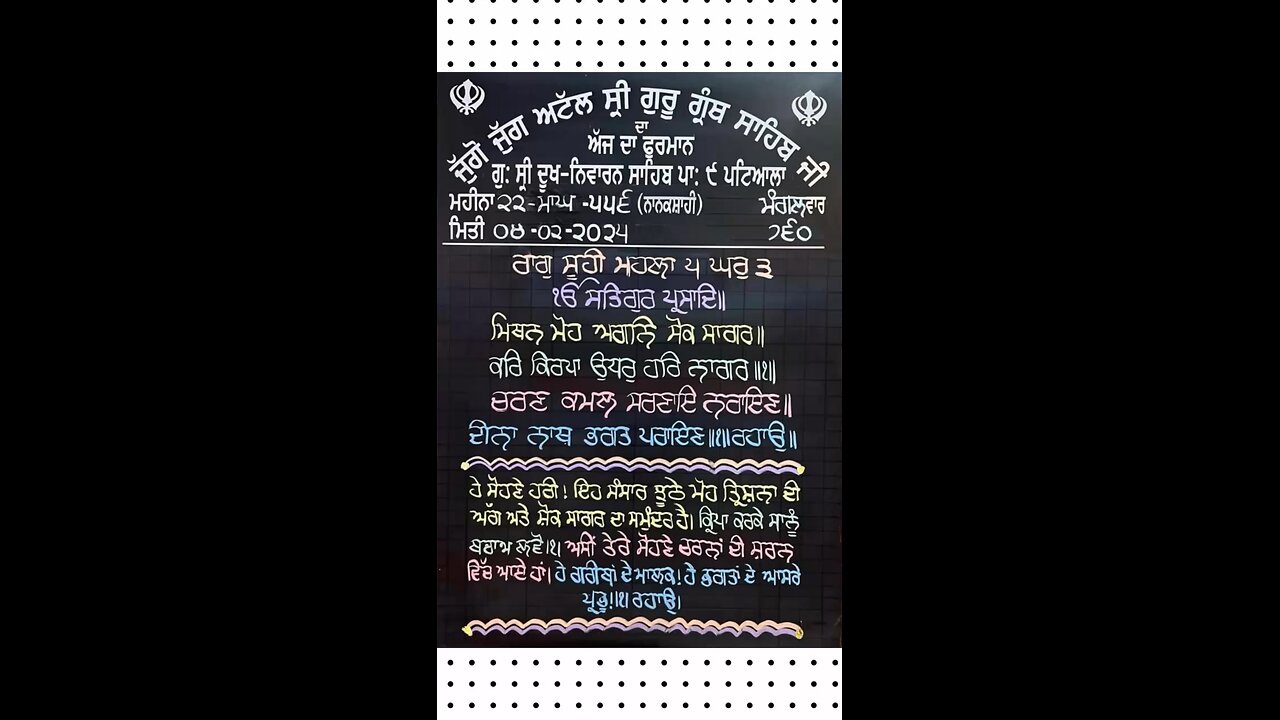 ਜੁੱਗੋ ਜੁੱਗ ਅਟੱਲ ਸ੍ਰੀ ਗੁਰੂ ਗ੍ਰੰਥ ਸਾਹਿਬ ਜੀ
ਦਾ
ਅੱਜ ਦਾ ਫੁਰਮਾਨ
ਗੁ: ਸ੍ਰੀ ਦੂਖ-ਨਿਵਾਰਨ ਸਾਹਿਬ ਪਾ: ੯ ਪਟਿਆਲਾ
ਮਹੀਨਾ ੨੨-ਮਾਘ -੫੫੬ (ਨਾਨਕਸ਼ਾਹੀ) ਮੰਗਲਵਾਰ
ਮਿਤੀ ੦੪-੦੨-੨੦੨੫ ੭੬੦
ਰਾਗੁ ਸੂਹੀ ਮਹਲਾ ੫ ਘਰੁ ੩
ੴ ਸਤਿਗੁਰ ਪ੍ਰਸਾਦਿ॥
ਮਿਥਨ ਮੋਹ ਅਗਨਿ ਸੋਕ ਸਾਗਰ॥
ਕਰਿ ਕਿਰਪਾ ਉਧਰੁ ਹਰਿ ਨਾਗਰ॥੧॥
ਚਰਣ ਕਮਲ ਸਰਣਾਇ ਨਰਾਇਣ॥
ਦੀਨਾ ਨਾਥ ਭਗਤ ਪਰਾਇਣ॥੧॥ਰਹਾਉ॥
ਹੇ ਸੋਹਣੇ ਹਰੀ! ਇਹ ਸੰਸਾਰ ਝੂਠੇ ਮੋਹ ਤ੍ਰਿਸ਼ਨਾ ਦੀ
ਅੱਗ ਅਤੇ ਸ਼ੋਕ ਸਾਗਰ ਦਾ ਸਮੁੰਦਰ ਹੈ। ਕ੍ਰਿਪਾ ਕਰਕੇ ਸਾਨੂੰ
ਬਚਾਅ ਲਵੋ।੧। ਅਸੀਂ ਤੇਰੇ ਸੋਹਣੇ ਚਰਨਾਂ ਦੀ ਸ਼ਰਨ
ਵਿੱਚ ਆਏ ਹਾਂ। ਹੇ ਗਰੀਬਾਂ ਦੇ ਮਾਲਕ! ਹੇ ਭਗਤਾਂ ਦੇ ਆਸਰੇ
ਪ੍ਰਭੂ!।੧। ਰਹਾਉ।